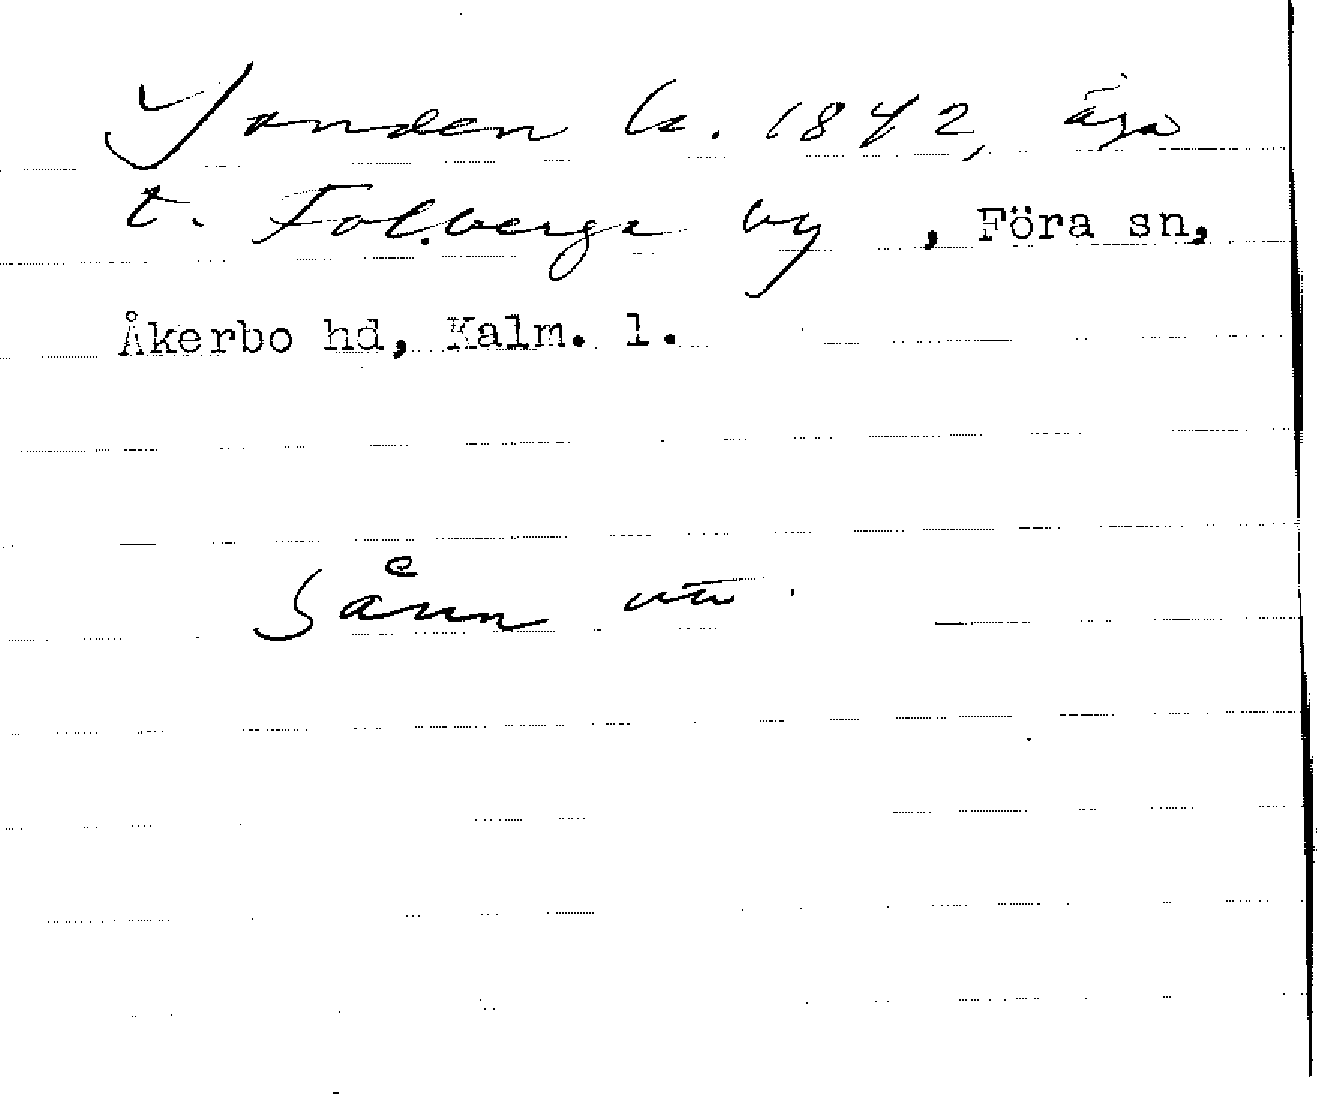 Sanden 1842, äga
t. Folberga by, Föra sn,
Åkerbo hd, Kalm. l.
sånn